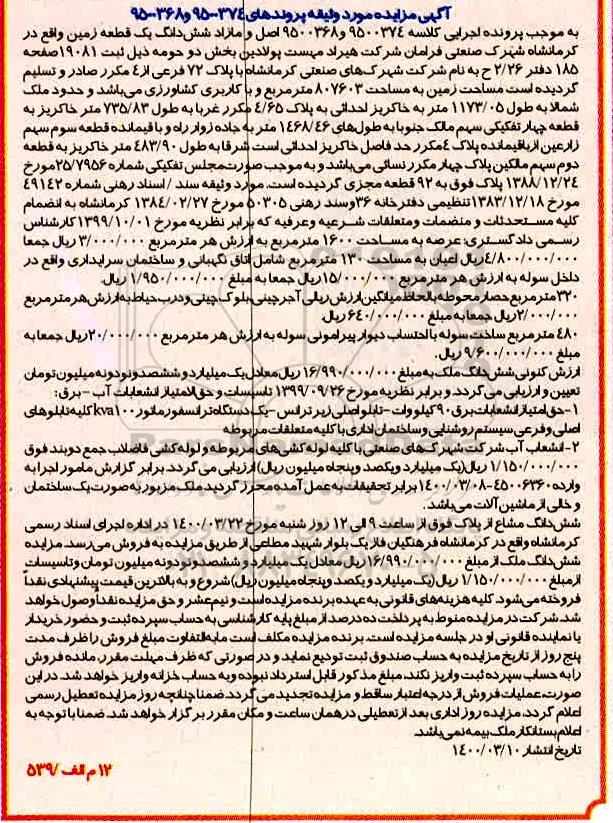 آگهی مزایده مورد وثیقه پرونده‌های ۹۵۰۰۳۷۴ و ۹۵۰۰۳۶۸
به موجب پرونده اجرایی کلاسه ۹۵۰۰۳۷۴ و ۹۵۰۰۳۶۸ اصل و مازاد شش‌دانگ یک قطعه زمین واقع در
کرمانشاه شهرک صنعتی فرامان شرکت هیراد مهست پولادین بخش دو حومه ذیل ثبت ۱۹۰۸۱ صفحه
۱۸۵ دفتر ۲/۲۶ ح به نام شرکت شهرک‌های صنعتی کرمانشاه با پلاک ۷۲ فرعی از ۴ مکرر صادر و تسلیم
گردیده است مساحت زمین به مساحت ۸۰۷۶۰۳ مترمربع و با کاربری کشاورزی می‌باشد و حدود ملک
شمالا به طول ۱۱۷۳/۰۵ متر به خاکریز احداثی به پلاک ۴/۶۵ مکرر غربا به طول ۷۳۵/۸۳ متر خاکریز به
قطعه چهار تفکیکی سهم مالک جنوبا به طول‌های ۱۴۶۸/۴۶ متر به جاده زوار راه و باقیمانده قطعه سوم سهم
زارعین از باقیمانده پلاک ۴ مکرر حد فاصل خاکریز احداثی است شرقا به طول ۴۸۳/۹۰ متر خاکریز به قطعه
دوم سهم مالکین پلاک چهار مکرر نسائی می‌باشد و به موجب صورت‌مجلس تفکیکی شماره ۲۵/۷۹۵۶ مورخ
۱۳۸۸/۱۲/۲۴ پلاک فوق به ۹۲ قطعه مجزی گردیده است. مورد وثیقه سند / اسناد رهنی شماره ۴۹۱۴۲
مورخ ۱۳۸۳/۱۲/۱۸ تنظیمی دفترخانه ۳۶ وسند رهنی ۵۰۳۰۵ مورخ ۱۳۸۴/۰۲/۲۷ کرمانشاه به انضمام
کلیه مستحدثات و منضمات ومتعلقات شرعیه وعرفیه که برابر نظریه مورخ ۱۳۹۹/۱۰/۰۱ کارشناس
رسمی دادگستری: عرصه به مساحت ۱۶۰۰ مترمربع به ارزش هر مترمربع ۳/۰۰۰/۰۰۰ ریال جمعا
۴/۸۰۰/۰۰۰/۰۰۰ ریال اعیان به مساحت ۱۳۰ مترمربع شامل اتاق نگهبانی و ساختمان سرایداری واقع در
داخل سوله به ارزش هر مترمربع ۱۵/۰۰۰/۰۰۰ ریال جمعا به مبلغ ۱/۹۵۰/۰۰۰/۰۰۰ ریال.
۳۲۰ مترمربع حصار محوطه بالحاظ میانگین ارزش ریالی آجرچینی، بلوک‌چینی ودرب حیاط به ارزش هر مترمربع
۲/۰۰۰/۰۰۰ ریال جمعا به مبلغ ۶۴۰/۰۰۰/۰۰۰ ریال.
۴۸۰ مترمربع ساخت سوله با احتساب دیوار پیرامونی سوله به ارزش هر مترمربع ۲۰/۰۰۰/۰۰۰ ریال جمعا به
مبلغ ۹/۶۰۰/۰۰۰/۰۰۰ ریال.
ارزش کنونی شش‌دانگ ملک به مبلغ ۱۶/۹۹۰/۰۰۰/۰۰۰ ریال معادل یک میلیارد و ششصدونودونه میلیون تومان
تعیین و ارزیابی می‌گردد. و برابر نظریه مورخ ۱۳۹۹/۰۹/۲۶ تاسیسات و حق‌الامتیاز انشعابات آب - برق:
۱-حق‌امتیاز انشعابات برق ۹۰ کیلووات - تابلو اصلی زیر ترانس - یک دستگاه ترانسفورماتور kva۱۰۰ کلیه تابلوهای
اصلی وفرعی سیستم روشنایی وساختمان اداری با کلیه متعلقات مربوطه
۲-انشعاب آب شرکت شهرک‌های صنعتی با کلیه لوله‌کشی‌های مربوطه و لوله‌کشی فاضلاب جمع دو بند فوق
۱/۱۵۰/۰۰۰/۰۰۰ ریال (یک میلیارد و یکصد و پنجاه میلیون ریال) ارزیابی می‌گردد. برابر گزارش مامور اجرا به
وارده ۴۵۰۰۶۳۶۰-۱۴۰۰/۰۳/۰۸ برابر تحقیقات به عمل آمده محرز گردید ملک مزبور به صورت یک ساختمان
و خالی از ماشین آلات می‌باشد.
شش‌دانگ مشاع از پلاک فوق از ساعت ۹ الی ۱۲ روز شنبه مورخ ۱۴۰۰/۰۳/۲۲ در اداره اجرای اسناد رسمی
کرمانشاه واقع در کرمانشاه فرهنگیان فاز یک بلوار شهید مطاعی از طریق مزایده به فروش می‌رسد. مزایده
شش‌دانگ ملک از مبلغ ۱۶/۹۹۰/۰۰۰/۰۰۰ ریال معادل یک میلیارد و ششصدونودونه میلیون تومان وتاسیسات
از مبلغ ۱/۱۵۰/۰۰۰/۰۰۰ ریال (یک میلیارد و یکصد و پنجاه میلیون ریال) شروع و به بالاترین قیمت پیشنهادی نقداً
فروخته می‌شود. کلیه هزینه‌های قانونی به عهده برنده مزایده است و نیم عشر و حق مزایده نقداً وصول خواهد
شد. شرکت در مزایده منوط به پرداخت ده درصد از مبلغ پایه کارشناسی به حساب سپرده ثبت و حضور خریدار
یا نماینده قانونی او در جلسه مزایده است. برنده مزایده مکلف است مابه‌التفاوت مبلغ فروش را ظرف مدت
پنج روز از تاریخ مزایده به حساب صندوق ثبت تودیع نماید و در صورتی که ظرف مهلت مقرر، مانده فروش
را به حساب سپرده ثبت واریز نکند، مبلغ مذکور قابل استرداد نبوده و به حساب خزانه واریز خواهد شد. در این
صورت، عملیات فروش از درجه اعتبار ساقط و مزایده تجدید می‌گردد. ضمنا چنانچه روز مزایده تعطیل رسمی
اعلام گردد، مزایده روز اداری بعد از تعطیلی در همان ساعت و مکان مقرر برگزار خواهد شد. ضمنا با توجه به
اعلام بستانکار ملک بیمه نمی‌باشد.
تاریخ انتشار ۱۴۰۰/۰۳/۱۰
۱۲ م الف /۵۳۹